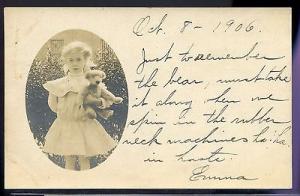 Oct. 8 - 1906.
Just to remember
the bear, must take
it along when we
spin in the rubber
neck machines ha! ha.
in haste.
Emma